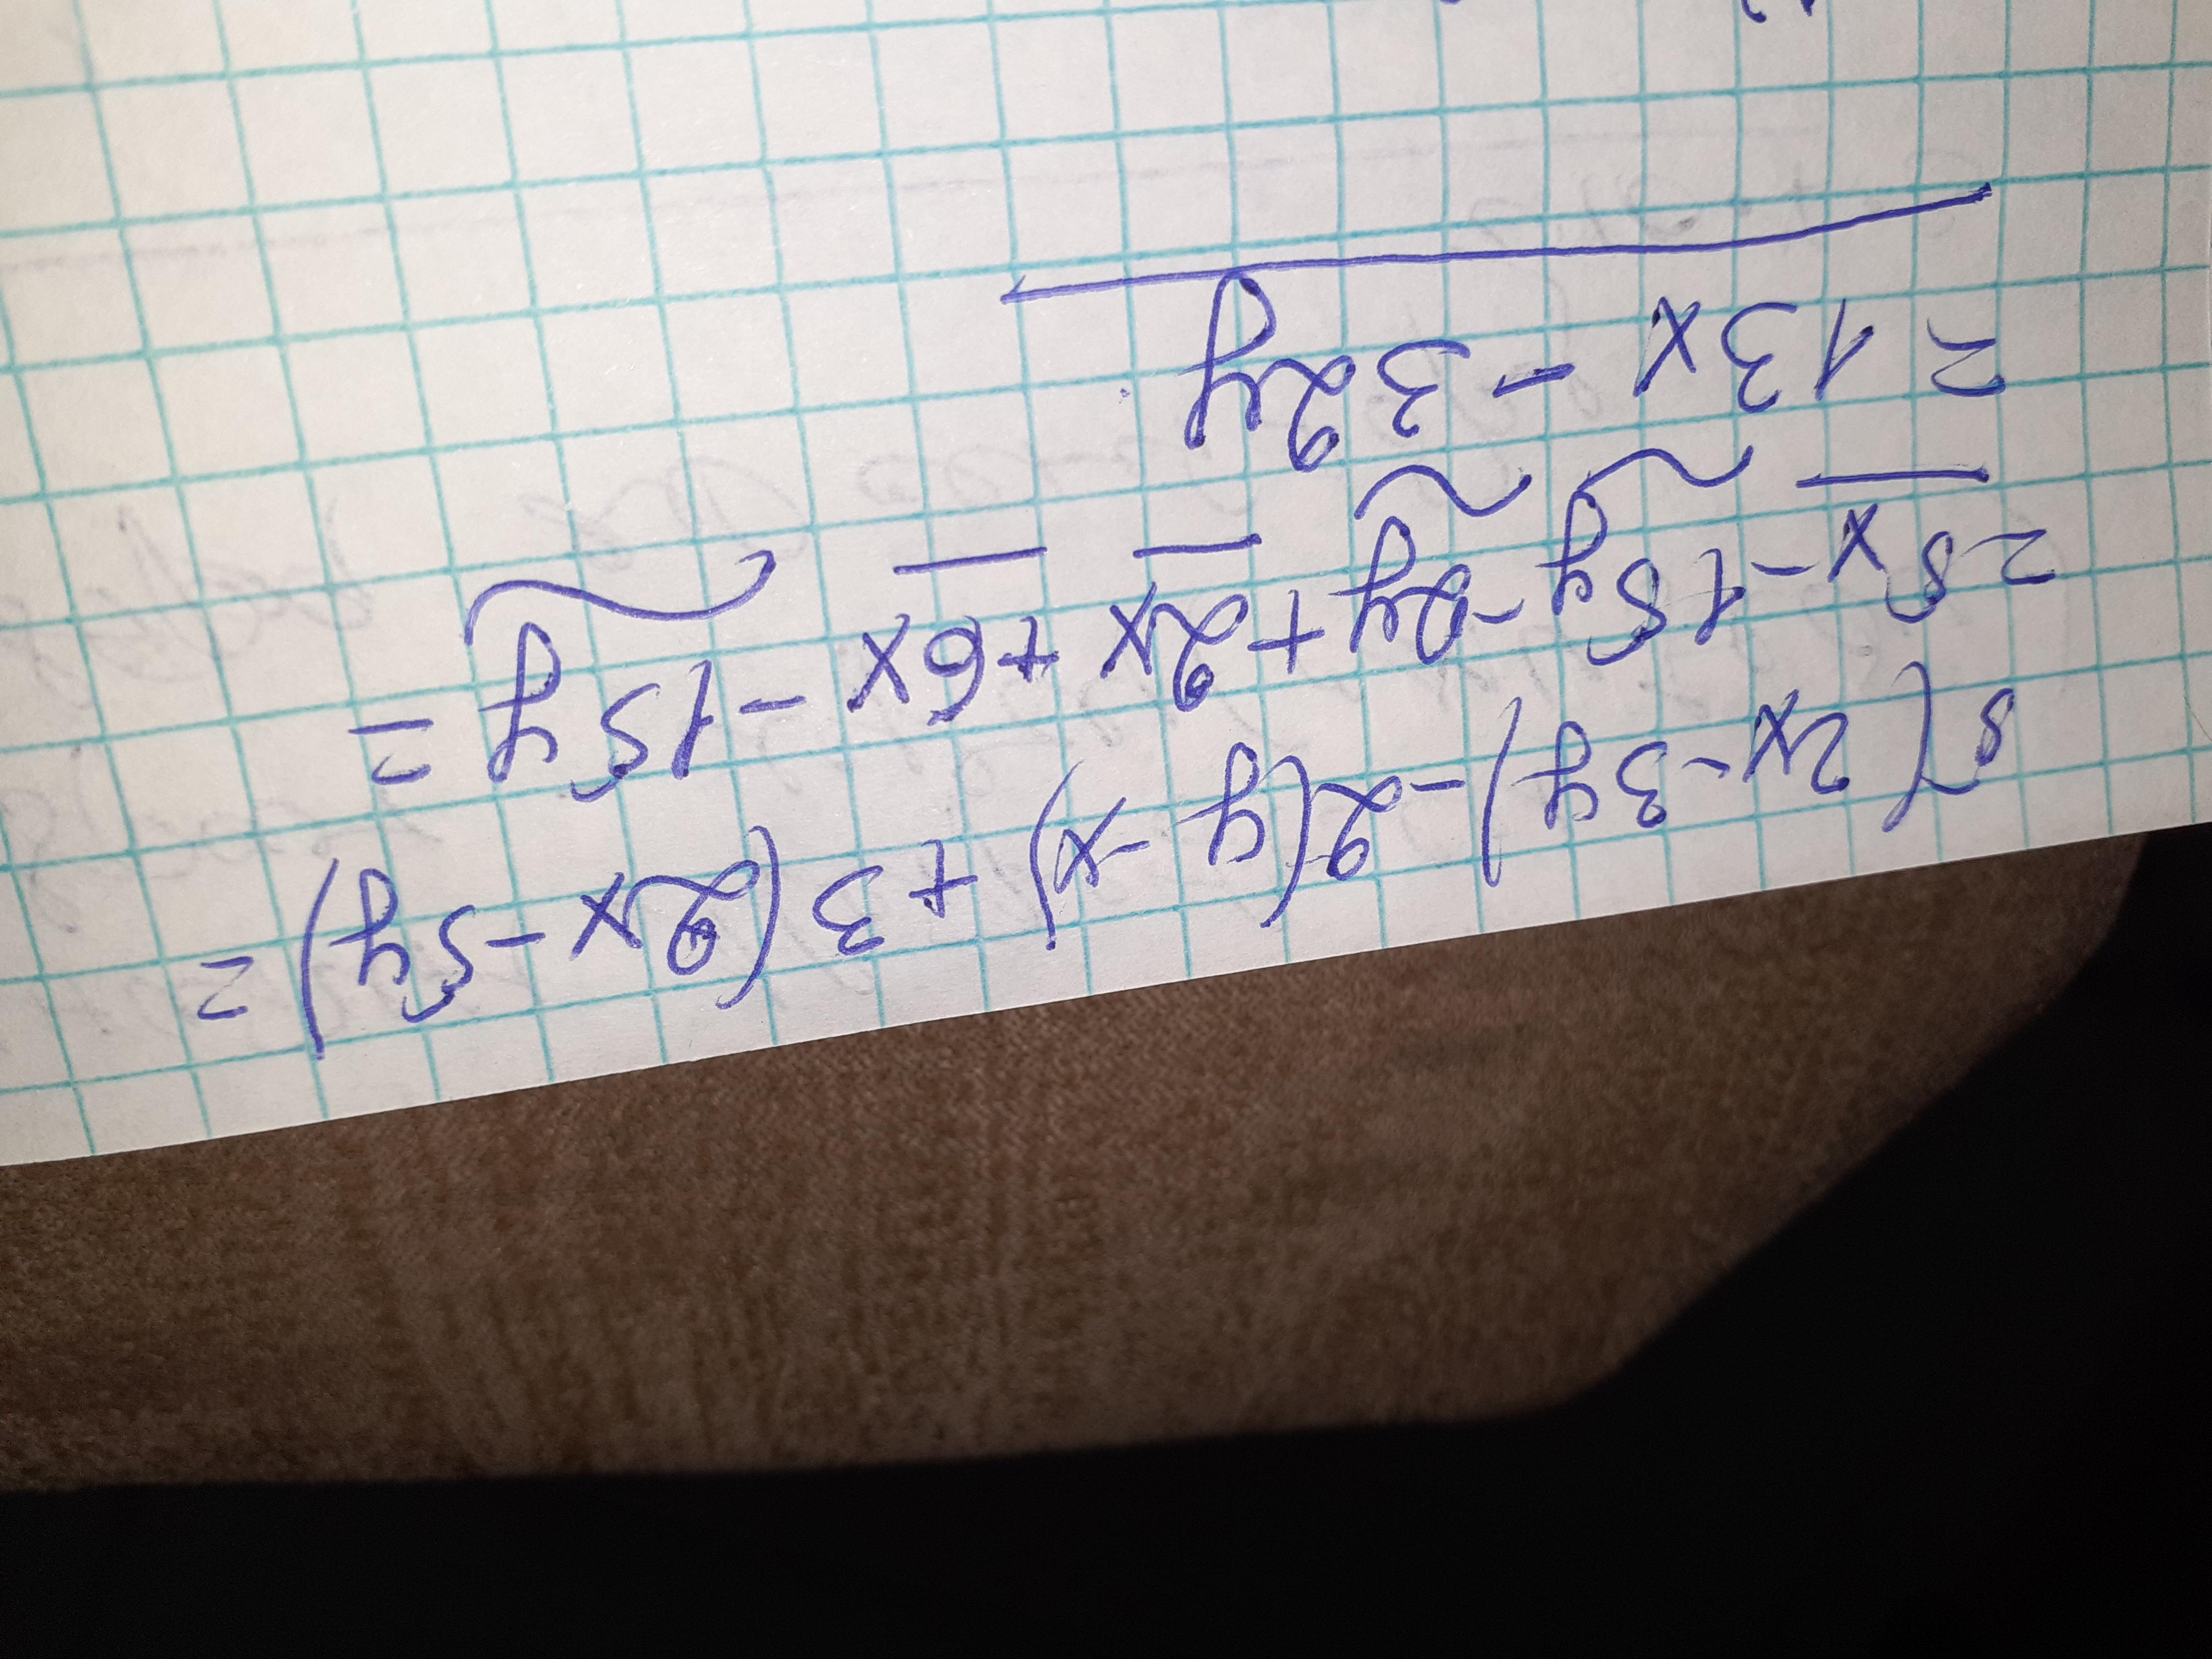 5(2x-3y)-2(y-x)+3(2x-5y)=
=5x-15y-2y+2x+6x-15y=
=13x-32y